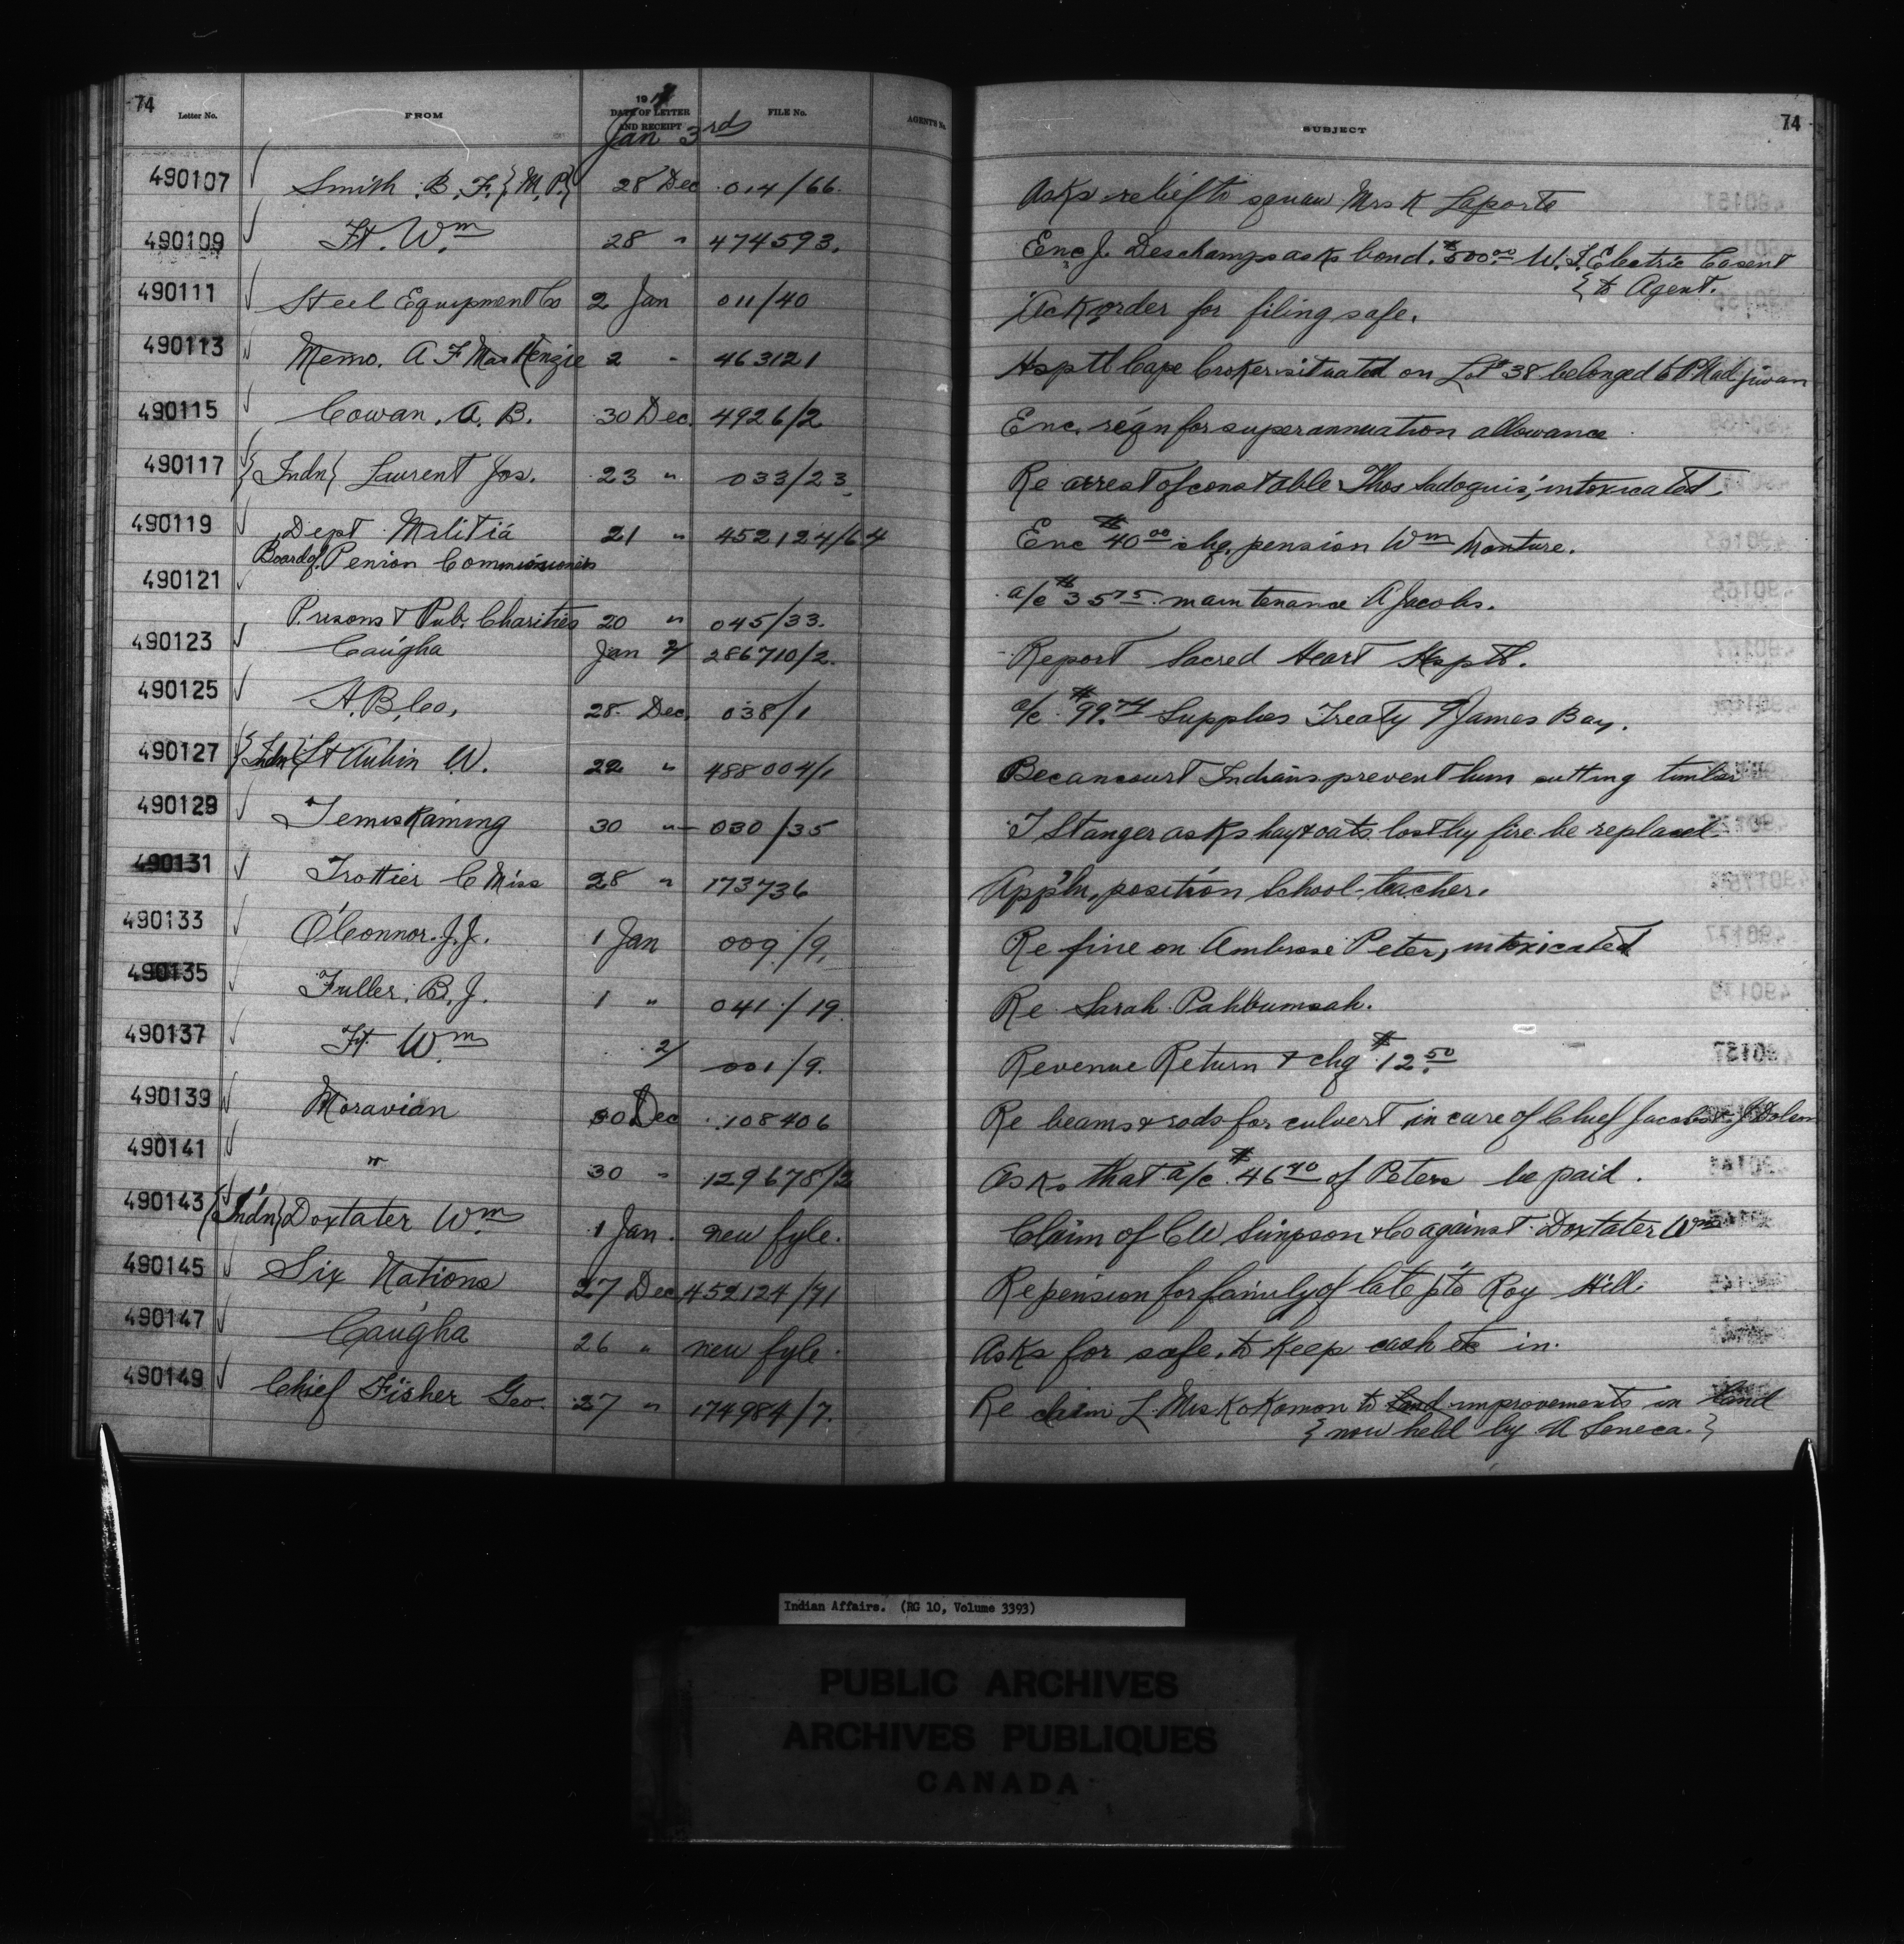 74
Letter No. FROM 19 DATE OF LETTER AND RECEIPT FILE No. AGENT'S No. SUBJECT
74
Jan 3rd
490107 Smith B. F. {M.P.} 28 Dec 014/66. Asks relief to squaw Mrs K Laporte
490109 Ft. Wm 28 " 474593. Enc. J. Deschamps asks bond. $500.00 W. J. Electric
{ to Agent.
490111 Steel Equipment Co 2 Jan 011/40 Ack order for filing safe.
490113 Memo. A F MacKenzie 2 " 463121 Hsptl Cape Croker situated on Lot 38 belonged to P Nadjiwan
490115 Cowan. A. B. 30 Dec. 4926/2 Enc. resgn for superannuation allowance
490117 {Indn} Laurent Jos. 23 " 033/23 Re arrest of constable Thos Sadoquis, intoxicated.
490119 Dept Militia 21 " 452124/64 Enc $40.00 chq. pension Wm Monture.
Board of Penion Commissioners
490121 Prisons & Pub. Charities 20 " 045/33. a/c $35.75 maintenance A Jacobs.
490123 Caugha Jan 2/ 286710/2. Report Sacred Heart Hsptl.
490125 H. B. Co, 28 Dec. 038/1 a/c $99.74 Supplies Treaty 9 James Bay.
490127 {Indn} St Aubin W. 22 " 488004/1 Becancourt Indians prevent him cutting timber
490129 Temiskaming 30 " 030/35 T Stanger asks hay & oats lost by fire be replaced
490131 Trottier C Miss 28 " 173736 Appln, position School-teacher.
490133 O'Connor. J. J. 1 Jan 009/9. Re fine on Ambrose Peter, intoxicated
490135 Fuller, B. J. 1 " 041/19. Re Sarah Pahbumsah.
490137 Ft. Wm 2/ 001/9. Revenue Return & chq $12.50
490139 Moravian 30 Dec 108406 Re beams & rods for culvert in care of Chief Jacobs & J Dolson
490141 " 30 " 129678/2 Asks that a/c $46.40 of Peters be paid.
490143 {Indn} Doxtater Wm 1 Jan. new fyle. Claim of CW Simpson & Co against Doxtater Wm
490145 Six Nations 27 Dec 452124/71 Re pension for family of late pte Roy Hill
490147 Caugha 26 " new fyle. Asks for safe, to keep cash etc in.
490149 Chief Fisher Geo. 27 " 174984/7. Re claim L. Mrs Kokomon to land improvements in land
{ now held by A Seneca. }
Indian Affairs. (RG 10, Volume 3393)
PUBLIC ARCHIVES
ARCHIVES PUBLIQUES
CANADA